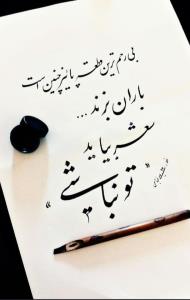 بی رحم ترین قطعه پاییز چنین است
باران بزند ...
شعر بیاید
"تو نباشی"